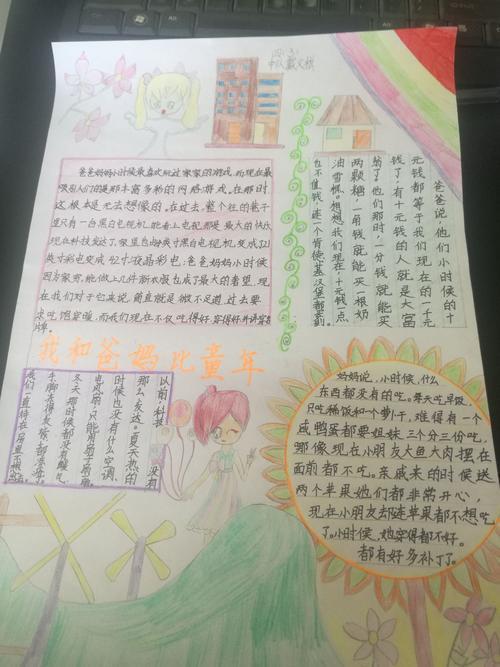 四(3)
中队戴文根
爸爸妈妈小时候最喜欢玩过家家的游戏,而现在最
吸引人们的是那丰富多彩的网络游戏。在那时
这根本是无法想像的。在过去,整个庄的巷干
道只有一台黑白电视机,能看上电视那是最大的快乐
现在科技发达了,家里也由4英寸黑白电视机,变成了21
英寸彩色变成42寸液晶彩电,爸爸妈妈小时候
因为家穷,能做上几件新衣服也成了最大的希望,现
在我们对于它来说,简直就是微不足道,过去要
求吃饱穿暖,而我们现在不仅吃得好,穿得好并讲究名
牌。
爸爸说他们小时候的十
元钱都等于我们现在的一千元
钱了,有十元钱的人就是大富
翁了,他们那时,一分钱就能买
两颗糖,一角钱就能买一根奶
油雪糕。想想我们现在,十元钱点
也不值钱,连一个肯德基汉堡都买到
我和爸妈比童年
以前,科技没有
那么发达。夏天热的
时候也没有什么空调、
电风扇,只能用扇子扇扇。
冬天,那时候都没有暖气
手脚冻得发
我们一直待在屋里不想
妈妈说,小时候,什么
东西都没有的吃。每天吃早饭,
只吃稀饭和一个萝卜干,难得有一个
咸鸭蛋都要姐妹三个分三份吃,
哪像现在小朋友大鱼大肉摆在
面前都不吃。亲戚来的时候送
两个苹果她们都非常开心,
现在小朋友却连苹果都不想吃
了。小时候,她穿得都不好。
都有好多补丁了。